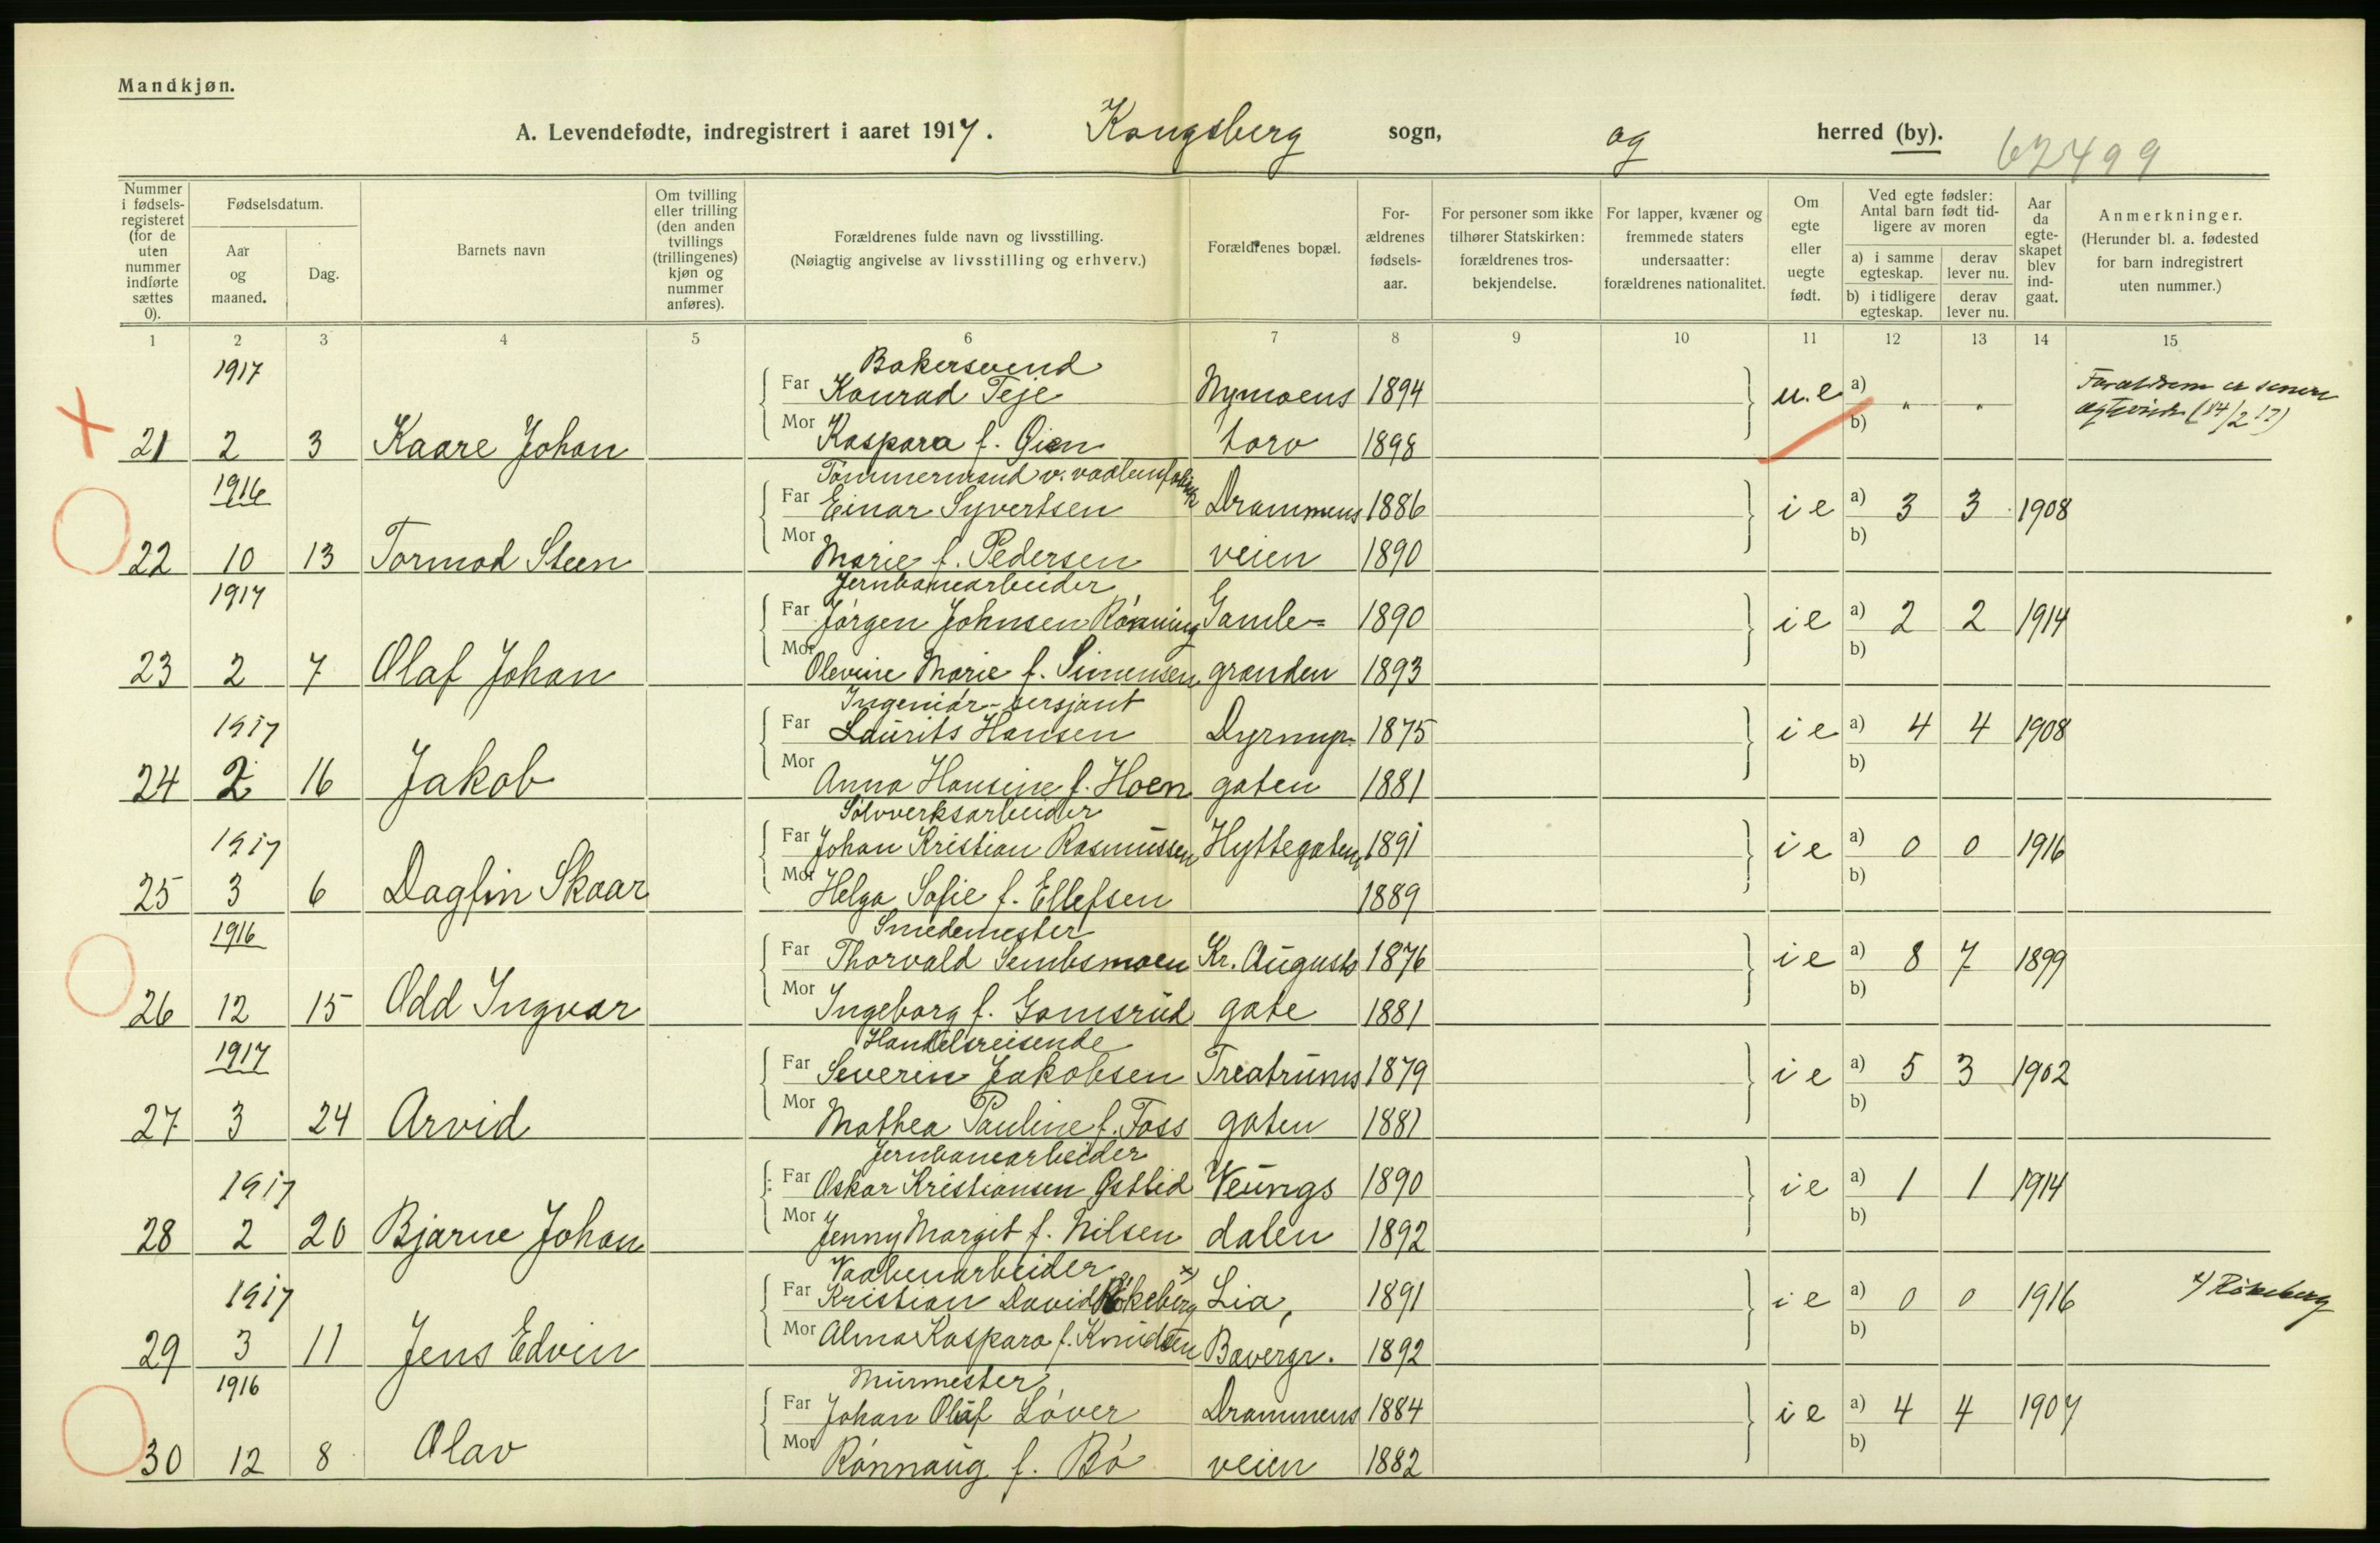 Mandkjøn.
A. Levendefødte, indregistrert i aaret 1917. Kongsberg sogn, og herred (by). 62499
Nummer i fødsels-registeret (for de uten nummer indførte sættes 0).
Fødselsdatum.
Aar og maaned.
Dag.
Barnets navn
Om tvilling eller trilling (den anden tvillings (trillingenes) kjøn og nummer anføres).
Forældrenes fulde navn og livsstilling.
(Nøiagtig angivelse av livsstilling og erhverv.)
Forældrenes bopæl.
For-ældrenes fødsels-aar.
For personer som ikke tilhører Statskirken: forældrenes tros-bekjendelse.
For lapper, kvæner og fremmede staters undersaatter: forældrenes nationalitet.
Om egte eller uegte født.
Ved egte fødsler: Antal barn født tid-ligere av moren
a) i samme egteskap. derav lever nu.
b) i tidligere egteskap. derav lever nu.
Aar da egte-skapet blev ind-gaat.
Anmerkninger.
(Herunder bl. a. fødested for barn indregistrert uten nummer.)
1 2 3 4 5 6 7 8 9 10 11 12 13 14 15
1917 Bakersvend
Far Konrad Teje Nymoens 1894 u.e a) " " Forældrene er senere
b) egteviede (14/2 17)
21 2 3 Kaare Johan Mor Kaspara f. Gien torv 1898
1916 Tømmermand v. vaabenfabrik
Far Einar Syvertsen Drammens 1886 i e a) 3 3 1908
b)
22 10 13 Tormod Steen Mor Marie f. Pedersen veien 1890
1917 Jernbanearbeider
Far Jørgen Johnsen Rønning Gamle= 1890 i e a) 2 2 1914
b)
23 2 7 Olaf Johan Mor Olevine Marie f. Simensen granden 1893
1917 Ingeniør-sersjant
Far Laurits Hansen Dyrmyr 1875 i e a) 4 4 1908
b)
24 2 16 Jakob Mor Anna Hansine f. Hoen gaten 1881
1917 Sølvverksarbeider
Far Johan Kristian Rasmussen Hyttegaten 1891 i e a) 0 0 1916
b)
25 3 6 Dagfin Skaar Mor Helga Sofie f. Ellefsen 1889
1916 Smedemester
Far Thorvald Sembsmoen Kr. Augusts 1876 i e a) 8 7 1899
b)
26 12 15 Odd Ingvar Mor Ingeborg f. Gamsrud gate 1881
1917 Handelsreisende
Far Severin Jakobsen Treatrums 1879 i e a) 5 3 1902
b)
27 3 24 Arvid Mor Mathea Pauline f. Foss gaten 1881
1917 Jernbanearbeider
Far Oskar Kristiansen Østlid Veungs 1890 i e a) 1 1 1914
b)
28 2 20 Bjarne Johan Mor Jenny Margit f. Nilsen dalen 1892
1917 Vaabenarbeider
Far Kristian David Røkeberg x) Lia, 1891 i e a) 0 0 1916 x) Røkeberg
b)
29 3 11 Jens Edvin Mor Alma Kaspara f. Knudsen Bavergr. 1892
1916 Murmester
Far Johan Olaf Løver Drammens 1884 i e a) 4 4 1907
b)
30 12 8 Olav Mor Rønnaug f. Bø veien 1882